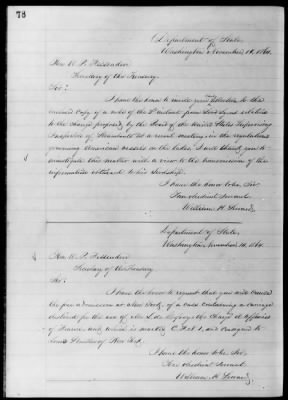 78
Department of State,
Washington November 14, 1864.
Hon W. P. Fessenden
Secretary of the Treasury.
Sir:
I have the honor to invite your attention to the
enclosed copy of a note of the 9th instant from Lord Lyons relative
to the change proposed by the Board of the United States Supervising
Inspectors of Steamboats at a recent meeting, in the regulations
governing American vessels on the lakes. I will thank you to
investigate this matter with a view to the transmission of the
information to his Lordship.
I have the honor to be, Sir
Your obedient servant
William H. Seward.
Department of State,
Washington, November 14, 1864.
Hon W. P. Fessenden
Secretary of the Treasury
Sir:
I have the honor to request that you will cause
the free admission at New York, of a case containing a carriage
destined for the use of Mr L. de Geofroy, the Chargé d'Affaires
of France and, which is marked C. 1, and consigned to
of New York.
I have the honor to be, Sir
Your obedient servant
William H. Seward.